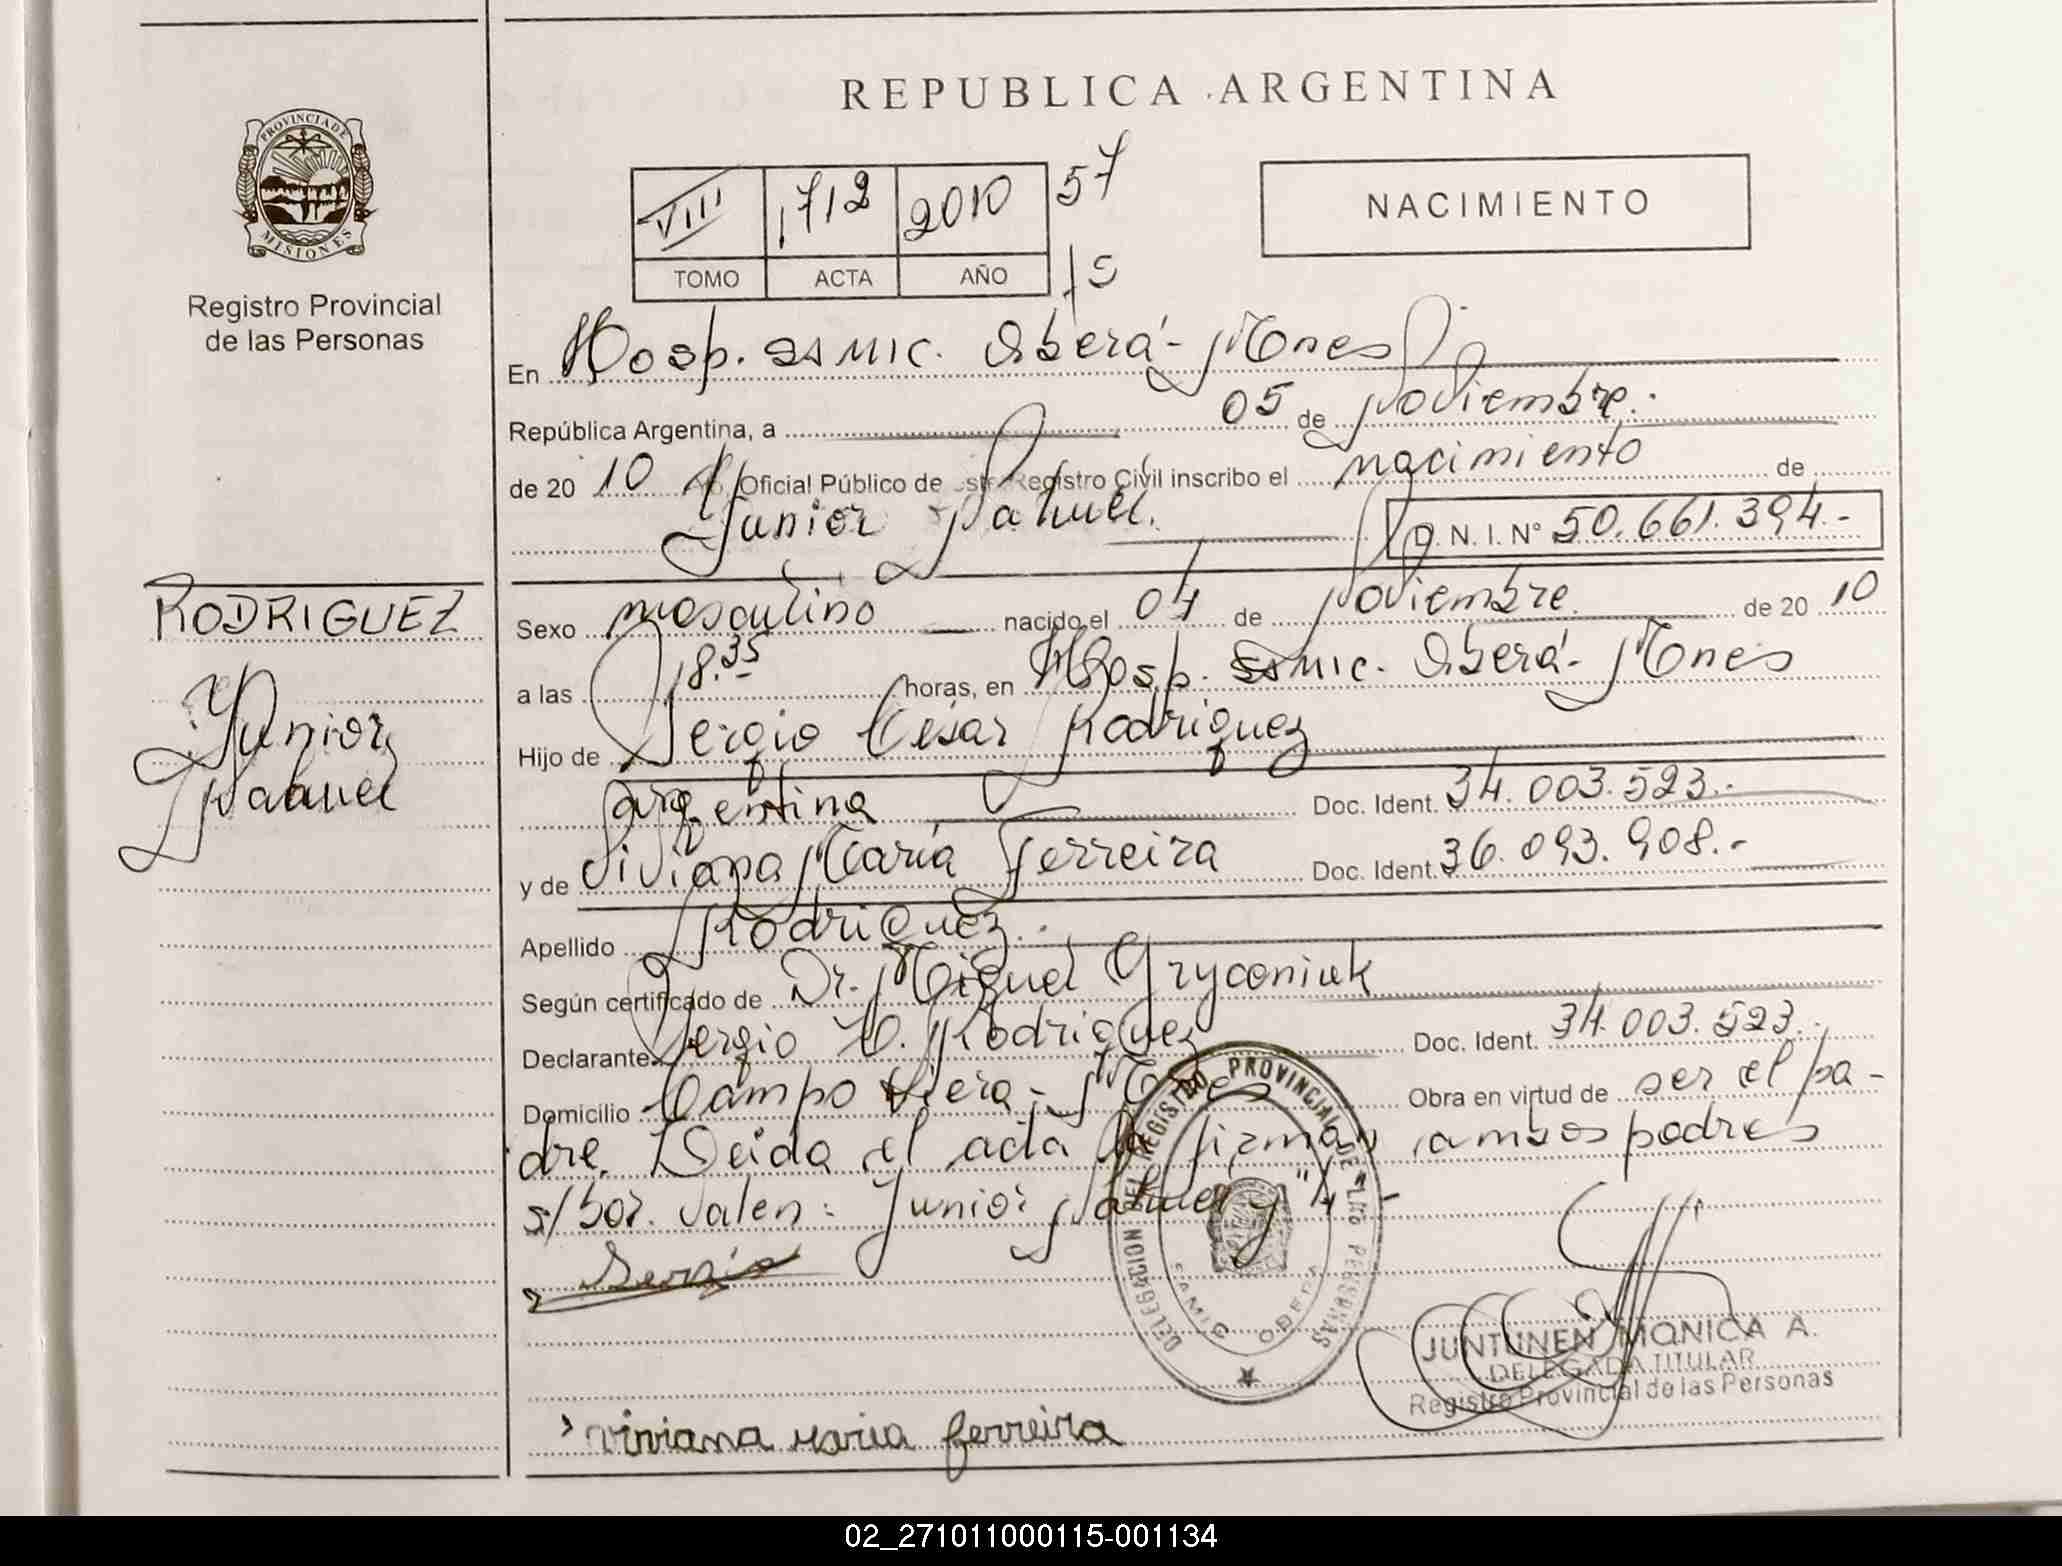 REPUBLICA ARGENTINA
PROVINCIA DE
MISIONES
Registro Provincial
de las Personas
VIII 1712 2010 57
TOMO ACTA AÑO 15
NACIMIENTO
En Hosp. SS MIC. Oberá - Mnes
República Argentina, a 05 de Noviembre.
de 20 10 Oficial Público de Registro Civil inscribo el nacimiento de
Junior Nahuel. D. N. I. Nº 50.661.394.-
RODRIGUEZ
Junior
Nahuel
Sexo masculino nacido el 04 de Noviembre de 20 10
a las 18.35 horas, en Hosp. SS MIC. Oberá - Mnes
Hijo de Sergio César Rodriguez
argentina Doc. Ident. 34.003.523.-
y de Viviana María Ferreira Doc. Ident. 36.093.908.-
Apellido Rodriguez.
Según certificado de Dr. Miguel Gryconiuk
Declarante Sergio C. Rodriguez Doc. Ident. 34.003.523.-
Domicilio Campo Viera - Mnes Obra en virtud de ser el pa-
dre. Leida el acta la firman ambos padres
s/bor. Valen: Junior Nahuel y "H"-
Sergio
DELEGACION DEL REGISTRO PROVINCIAL DE LAS PERSONAS
JUNTUNEN MONICA A.
DELEGADA TITULAR
Registro Provincial de las Personas
viviana maria ferreira
02_271011000115-001134